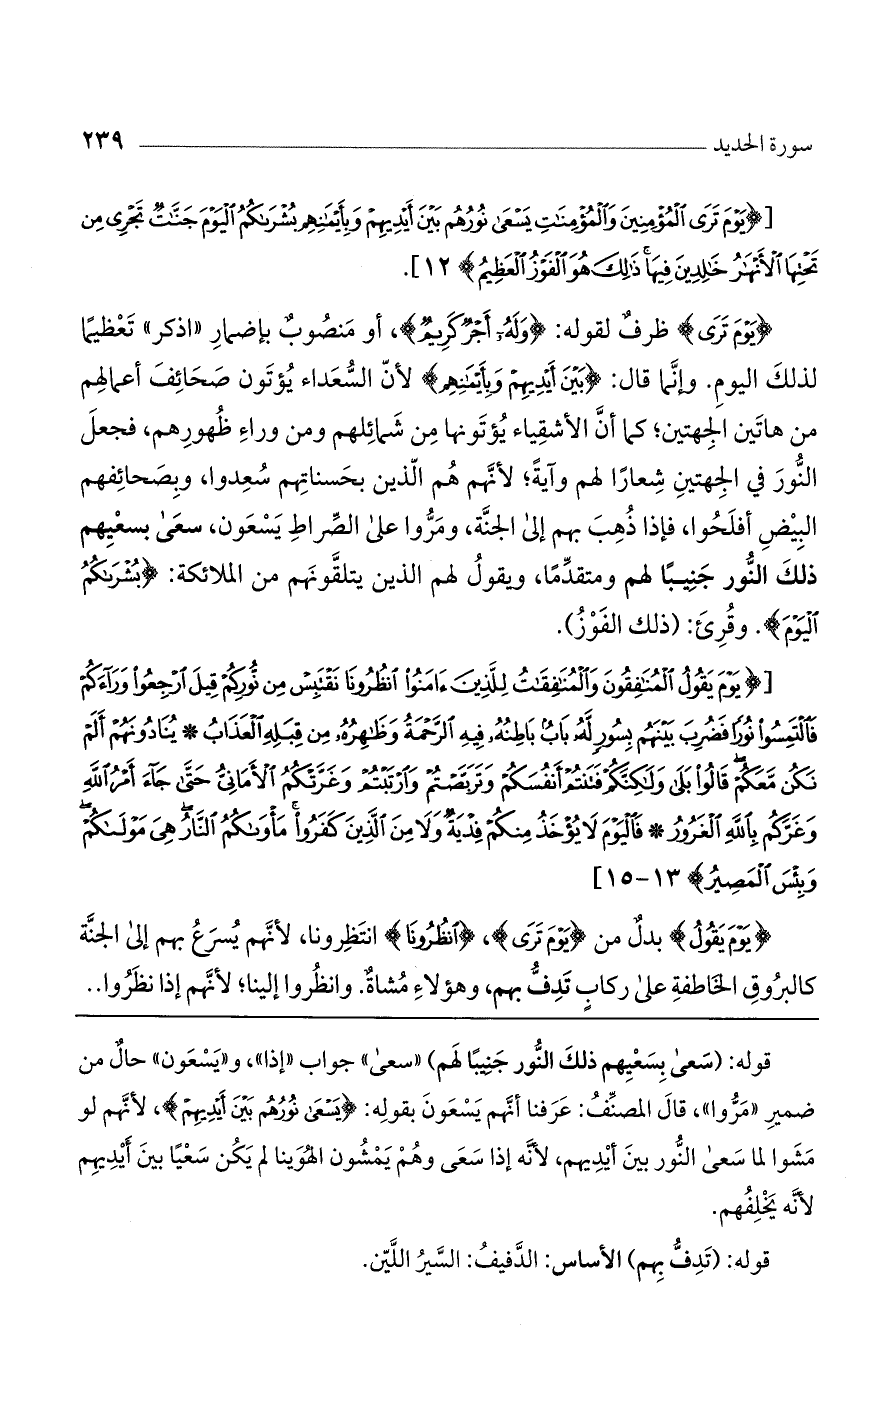 سورة الحديد ٢٣٩
[﴿يَوْمَ تَرَى ٱلْمُؤْمِنِينَ وَٱلْمُؤْمِنَٰتِ يَسْعَىٰ نُورُهُم بَيْنَ أَيْدِيهِمْ وَبِأَيْمَٰنِهِم بُشْرَىٰكُمُ ٱلْيَوْمَ جَنَّٰتٌ تَجْرِى مِن
تَحْتِهَا ٱلْأَنْهَٰرُ خَٰلِدِينَ فِيهَا ۚ ذَٰلِكَ هُوَ ٱلْفَوْزُ ٱلْعَظِيمُ﴾ ١٢].
﴿يَوْمَ تَرَى﴾ ظرفٌ لقوله: ﴿وَلَهُۥٓ أَجْرٌ كَرِيمٌ﴾، أو مَنصُوبٌ بإضمارِ «اذكر» تَعْظيمًا
لذلكَ اليومِ. وإنَّما قال: ﴿بَيْنَ أَيْدِيهِمْ وَبِأَيْمَٰنِهِم﴾ لأنّ السُّعَداء يُؤتَون صَحَائِفَ أعمالِهم
من هاتَين الجِهتين؛ كما أنَّ الأشقِياء يُؤتَونها مِن شَمائِلهم ومن وراءِ ظُهورِهم، فجعلَ
النُّورَ في الجِهتينِ شِعارًا لهم وآيةً؛ لأنَّهم هُم الّذين بحَسناتِهم سُعِدوا، وبِصَحائِفهم
البِيْضِ أفلَحُوا، فإذا ذُهِبَ بهم إلىٰ الجنَّة، ومَرُّوا علىٰ الصِّراطِ يَسْعَون، سعَىٰ بسعْيِهم
ذلكَ النُّور جَنِيبًا لهم ومتقدِّمًا، ويقولُ لهم الذين يتلقَّونَهم من الملائكة: ﴿بُشْرَىٰكُمُ
ٱلْيَوْمَ﴾. وقُرِئَ: (ذلك الفَوْزُ).
[﴿يَوْمَ يَقُولُ ٱلْمُنَٰفِقُونَ وَٱلْمُنَٰفِقَٰتُ لِلَّذِينَ ءَامَنُوا۟ ٱنظُرُونَا نَقْتَبِسْ مِن نُّورِكُمْ قِيلَ ٱرْجِعُوا۟ وَرَآءَكُمْ
فَٱلْتَمِسُوا۟ نُورًا فَضُرِبَ بَيْنَهُم بِسُورٍ لَّهُۥ بَابٌۢ بَاطِنُهُۥ فِيهِ ٱلرَّحْمَةُ وَظَٰهِرُهُۥ مِن قِبَلِهِ ٱلْعَذَابُ * يُنَادُونَهُمْ أَلَمْ
نَكُن مَّعَكُمْ ۖ قَالُوا۟ بَلَىٰ وَلَٰكِنَّكُمْ فَتَنتُمْ أَنفُسَكُمْ وَتَرَبَّصْتُمْ وَٱرْتَبْتُمْ وَغَرَّتْكُمُ ٱلْأَمَانِىُّ حَتَّىٰ جَآءَ أَمْرُ ٱللَّهِ
وَغَرَّكُم بِٱللَّهِ ٱلْغَرُورُ * فَٱلْيَوْمَ لَا يُؤْخَذُ مِنكُمْ فِدْيَةٌ وَلَا مِنَ ٱلَّذِينَ كَفَرُوا۟ ۚ مَأْوَىٰكُمُ ٱلنَّارُ ۖ هِىَ مَوْلَىٰكُمْ ۖ
وَبِئْسَ ٱلْمَصِيرُ﴾ ١٣-١٥]
﴿يَوْمَ يَقُولُ﴾ بدلٌ من ﴿يَوْمَ تَرَى﴾، ﴿ٱنظُرُونَا﴾ انتَظِرونا، لأنَّهم يُسرَعُ بهم إلىٰ الجنَّة
كالبرُوقِ الخَاطفةِ علىٰ ركابٍ تَدِفُّ بهم، وهؤلاءِ مُشاةٌ. وانظُروا إلينا؛ لأنَّهم إذا نظَرُوا..
قوله: (سَعىٰ بِسَعْيِهم ذلكَ النُّور جَنِيبًا لَهم) «سعىٰ» جواب «إذا»، و«يَسْعَون» حالٌ من
ضميرِ «مَرُّوا»، قالَ المصنِّفُ: عَرَفنا أنَّهم يَسْعَونَ بقولِه: ﴿يَسْعَىٰ نُورُهُم بَيْنَ أَيْدِيهِمْ﴾، لأنَّهم لو
مَشَوا لما سَعىٰ النُّور بينَ أيْدِيهم، لأنَّه إذا سَعَى وهُمْ يَمْشُون الهُوَينا لم يَكُن سَعْيًا بينَ أَيْدِيهِم
لأنَّه يَخْلِفُهم.
قوله: (تَدِفُّ بِهم) الأساس: الدَّفيفُ: السَّيرُ اللَّيّن.